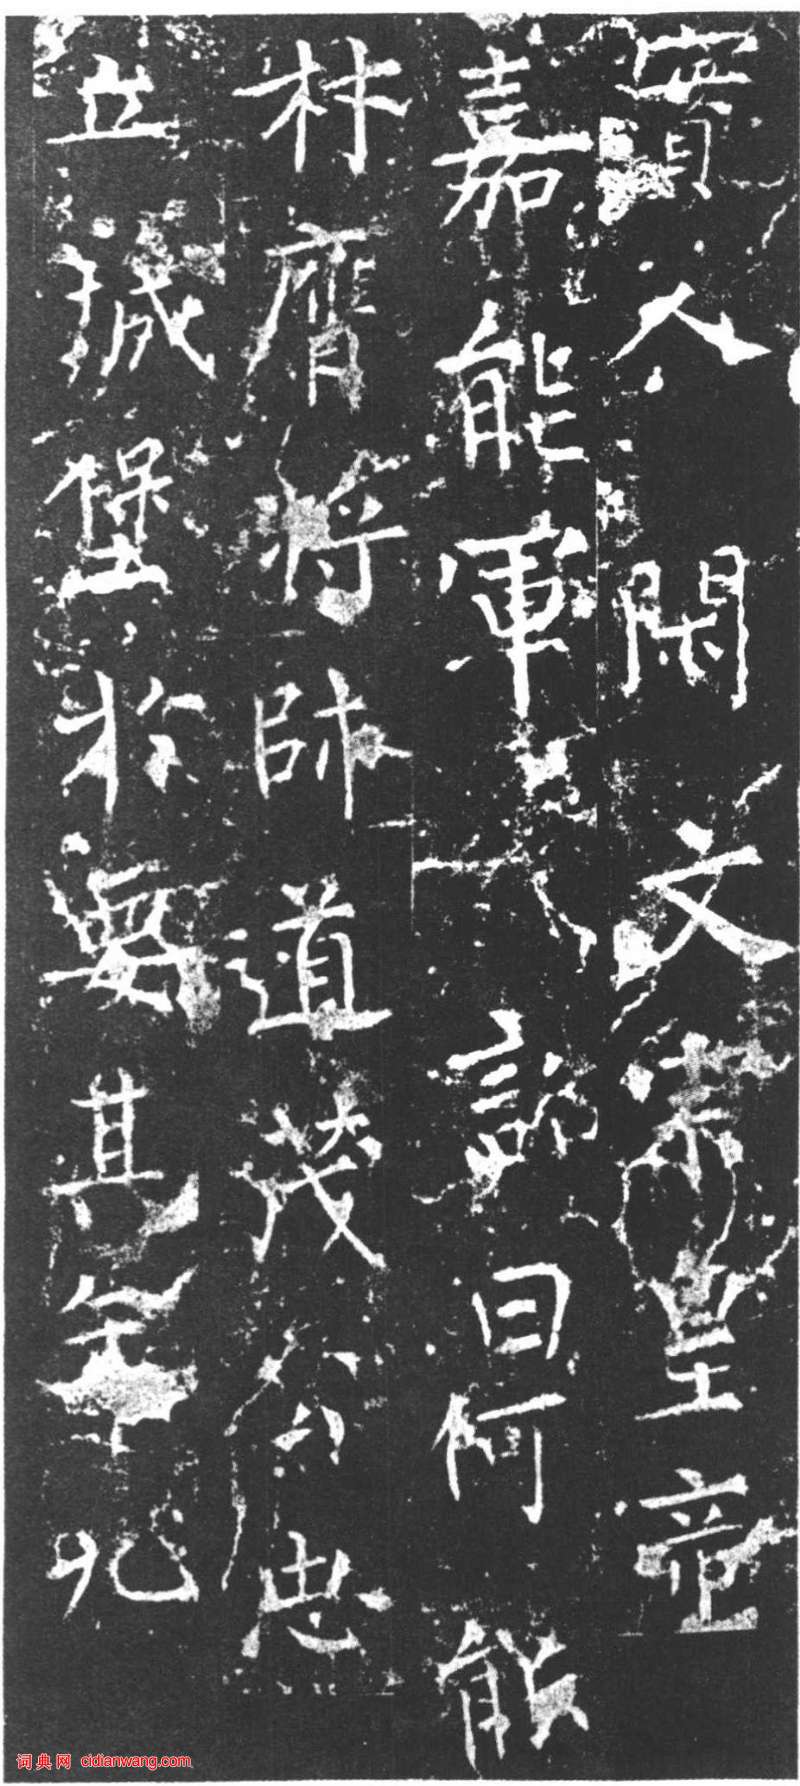 賓入閑文宗皇帝
嘉能軍詔曰何能
材膺將帥道茂公忠
立城堡於要其年九
词典网 cidianwang.com